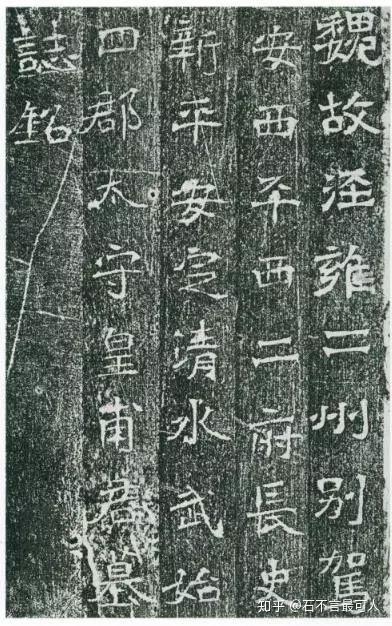 魏故泾雍二州别驾
安西平西二府長史
新平安定清水武始
四郡太守皇甫君墓
誌銘
知乎 @石不言最可人